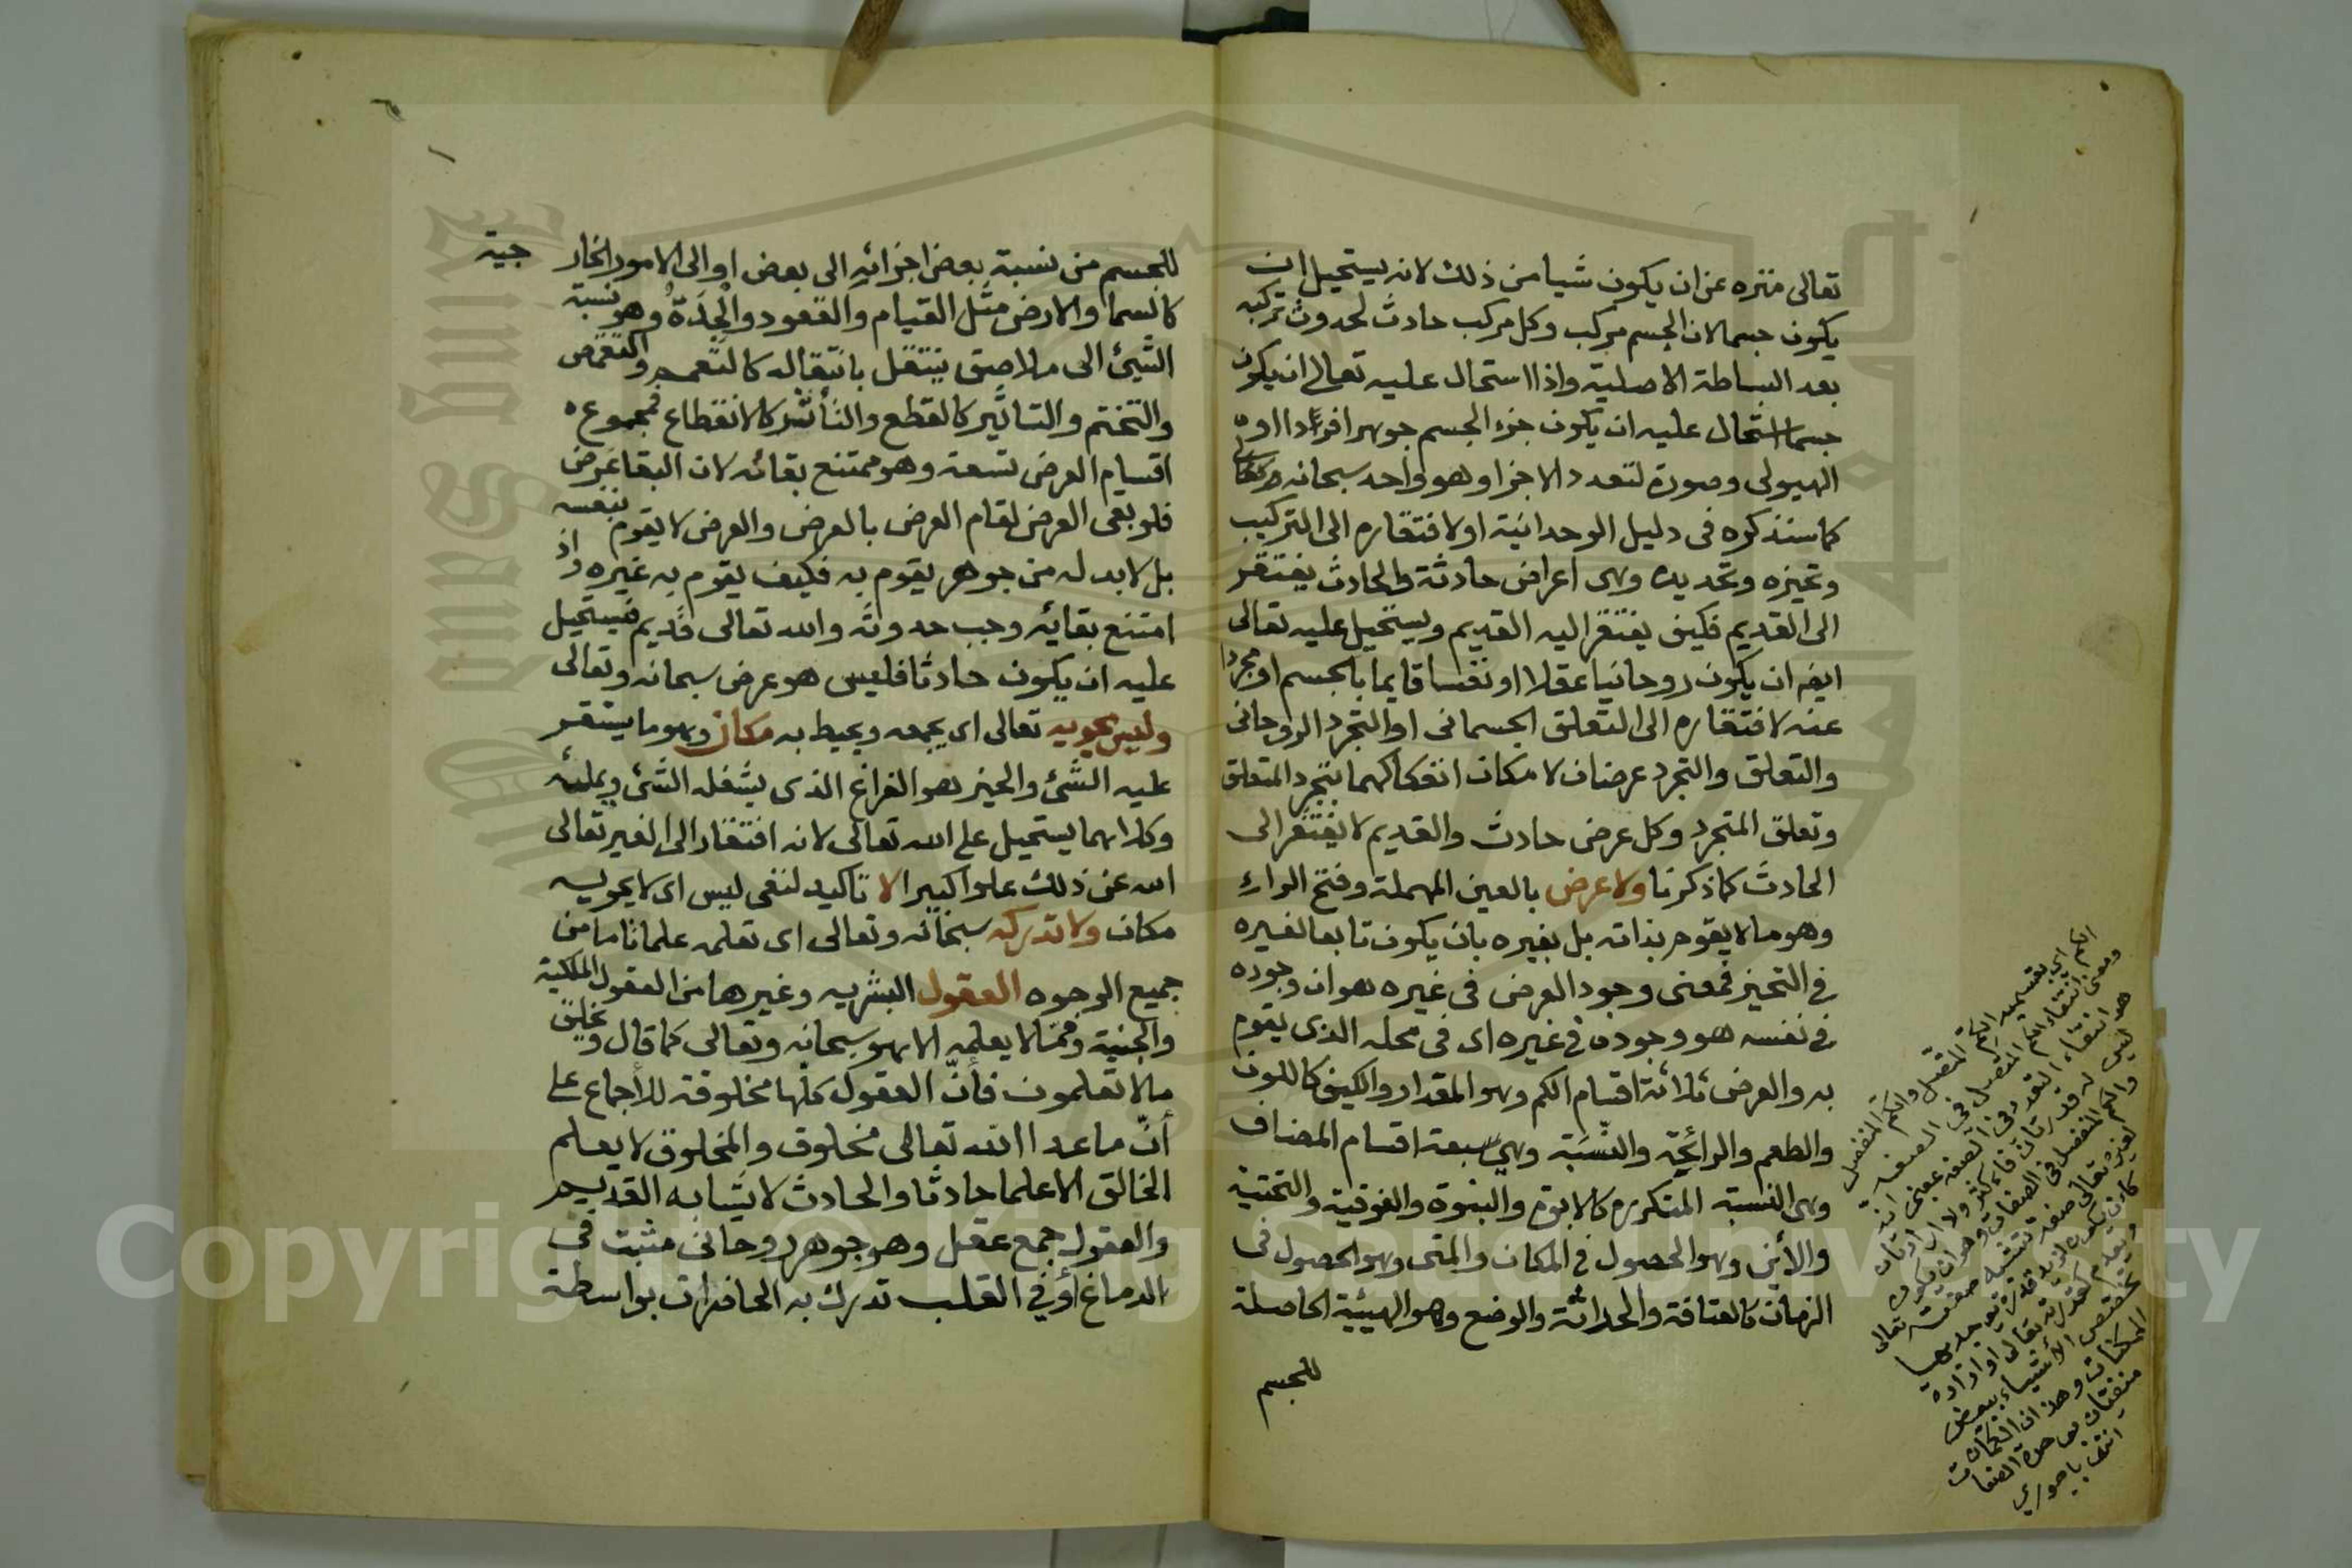 تعالى منزه عن ان يكون شيا من ذلك لانه يستحيل ان
يكون جسما لان الجسم مركب وكل مركب حادث لحدوث تركبه
بعد البساطة الاصلية واذا استحال عليه تعالى ان يكون
جسما استحال عليه ان يكون جزء الجسم جوهرا فردا او
الهيولى وصورة لتعدد الاجزا وهو واحد سبحانه وتعالى
كما سنذكره فى دليل الوحدانية او لافتقاره الى التركيب
وتحيزه وتحديده وهى اعراض حادثة والحادث يفتقر
الى القديم فكيف يفتقر اليه القديم ويستحيل عليه تعالى
ايضا ان يكون روحانيا عقلا او نفسا قايما بالجسم او مجردا
عنه لافتقاره الى التعلق الجسمانى او التجرد الروحانى
والتعلق والتجرد عرضان لامكان انفكاكهما بتجرد المتعلق
وتعلق المتجرد وكل عرض حادث والقديم لا يفتقر الى
الحادث كما ذكرنا ولا عرض بالعين المهملة وفتح الراء
وهو ما لا يقوم بذاته بل بغيره بان يكون تابعا لغيره
فى التحيز فمعنى وجود العرض فى غيره هو ان وجوده
فى نفسه هو وجوده فى غيره اى فى محله الذى يقوم
به والعرض ثلاثة اقسام الكم وهو المقدار والكيف كاللون
والطعم والرائحة والنسبة وهى سبعة اقسام المضاف
وهى النسبة المتكرره كالابوة والبنوة والفوقية والتحتية
والأين وهو الحصول فى المكان والمتى وهو الحصول فى
الزمان كالعتاقة والحداثة والوضع وهو الهيئية الحاصلة
للجسم
الكم اى بقسميه الكم المتصل والكم المنفصل
ومعنى انتفاء الكم المنفصل فى الصفة
هو انتفاء التعدد فى الصفة بمعنى انه
ليس له قدرتان فاكثر ولا ارادتان
والكم المنفصل فى الصفات وهو ان يكون
لغيره تعالى صفة تشبه صفته تعالى
كان يكون لزيد قدرة يوجد بها
ويعدم كقدرته تعالى او ارادة
تخصص الاشياء ببعض
الممكنات وهذان الكمان
منفيان بوحدة الصفات
انتهى باجورى
للجسم من نسبة بعض اجزائه الى بعض او الى الامور الخار جية
كالسما والارض مثل القيام والقعود والْجِدَةُ وهو نسبة
الشيئ الى ملاصق ينتقل بانتقاله كالتعمم والتقمص
والتختم والتاثير كالقطع والتأثر كالانقطاع فمجموع
اقسام العرض تسعة وهو ممتنع بقائه لان البقا عرض
فلو بقى العرض لقام العرض بالعرض والعرض لا يقوم بنفسه
بل لابد له من جوهر يقوم به فكيف يقوم به غيره واذ
امتنع بقايه وجب حدوثه والله تعالى قديم فيستحيل
عليه ان يكون حادثا فليس هو عرض سبحانه وتعالى
وليس يحويه تعالى اى يجمعه ويحيط به مكان وهو ما يستقر
عليه الشئ والحيز هو الفراغ الذى يشغله الشئ ويملئه
وكلاهما يستحيل على الله تعالى لانه افتقار الى الغير تعالى
الله عن ذلك علوا كبيرا لا تاكيد لنفى ليس اى لا يحويه
مكان ولا تدركه سبحانه وتعالى اى تعلمه علما تاما من
جميع الوجوه العقول البشريه وغيرها من العقول الملكية
والجنية ومما لا يعلمه الا هو سبحانه وتعالى كما قال ويخلق
مالا تعلمون فأنّ العقول كلها مخلوقة للاجماع على
أنّ ماعدا الله تعالى مخلوق والمخلوق لا يعلم
الخالق الا علما حادثا والحادث لا يشابه القديم
والعقول جمع عقل وهو جوهر روحانى مثبت فى
الدماغ أو فى القلب تدرك به الحاضرات بواسطة